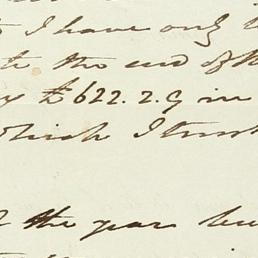 I have only
the end of th
y to £622.2.9 in
which I trust
the year